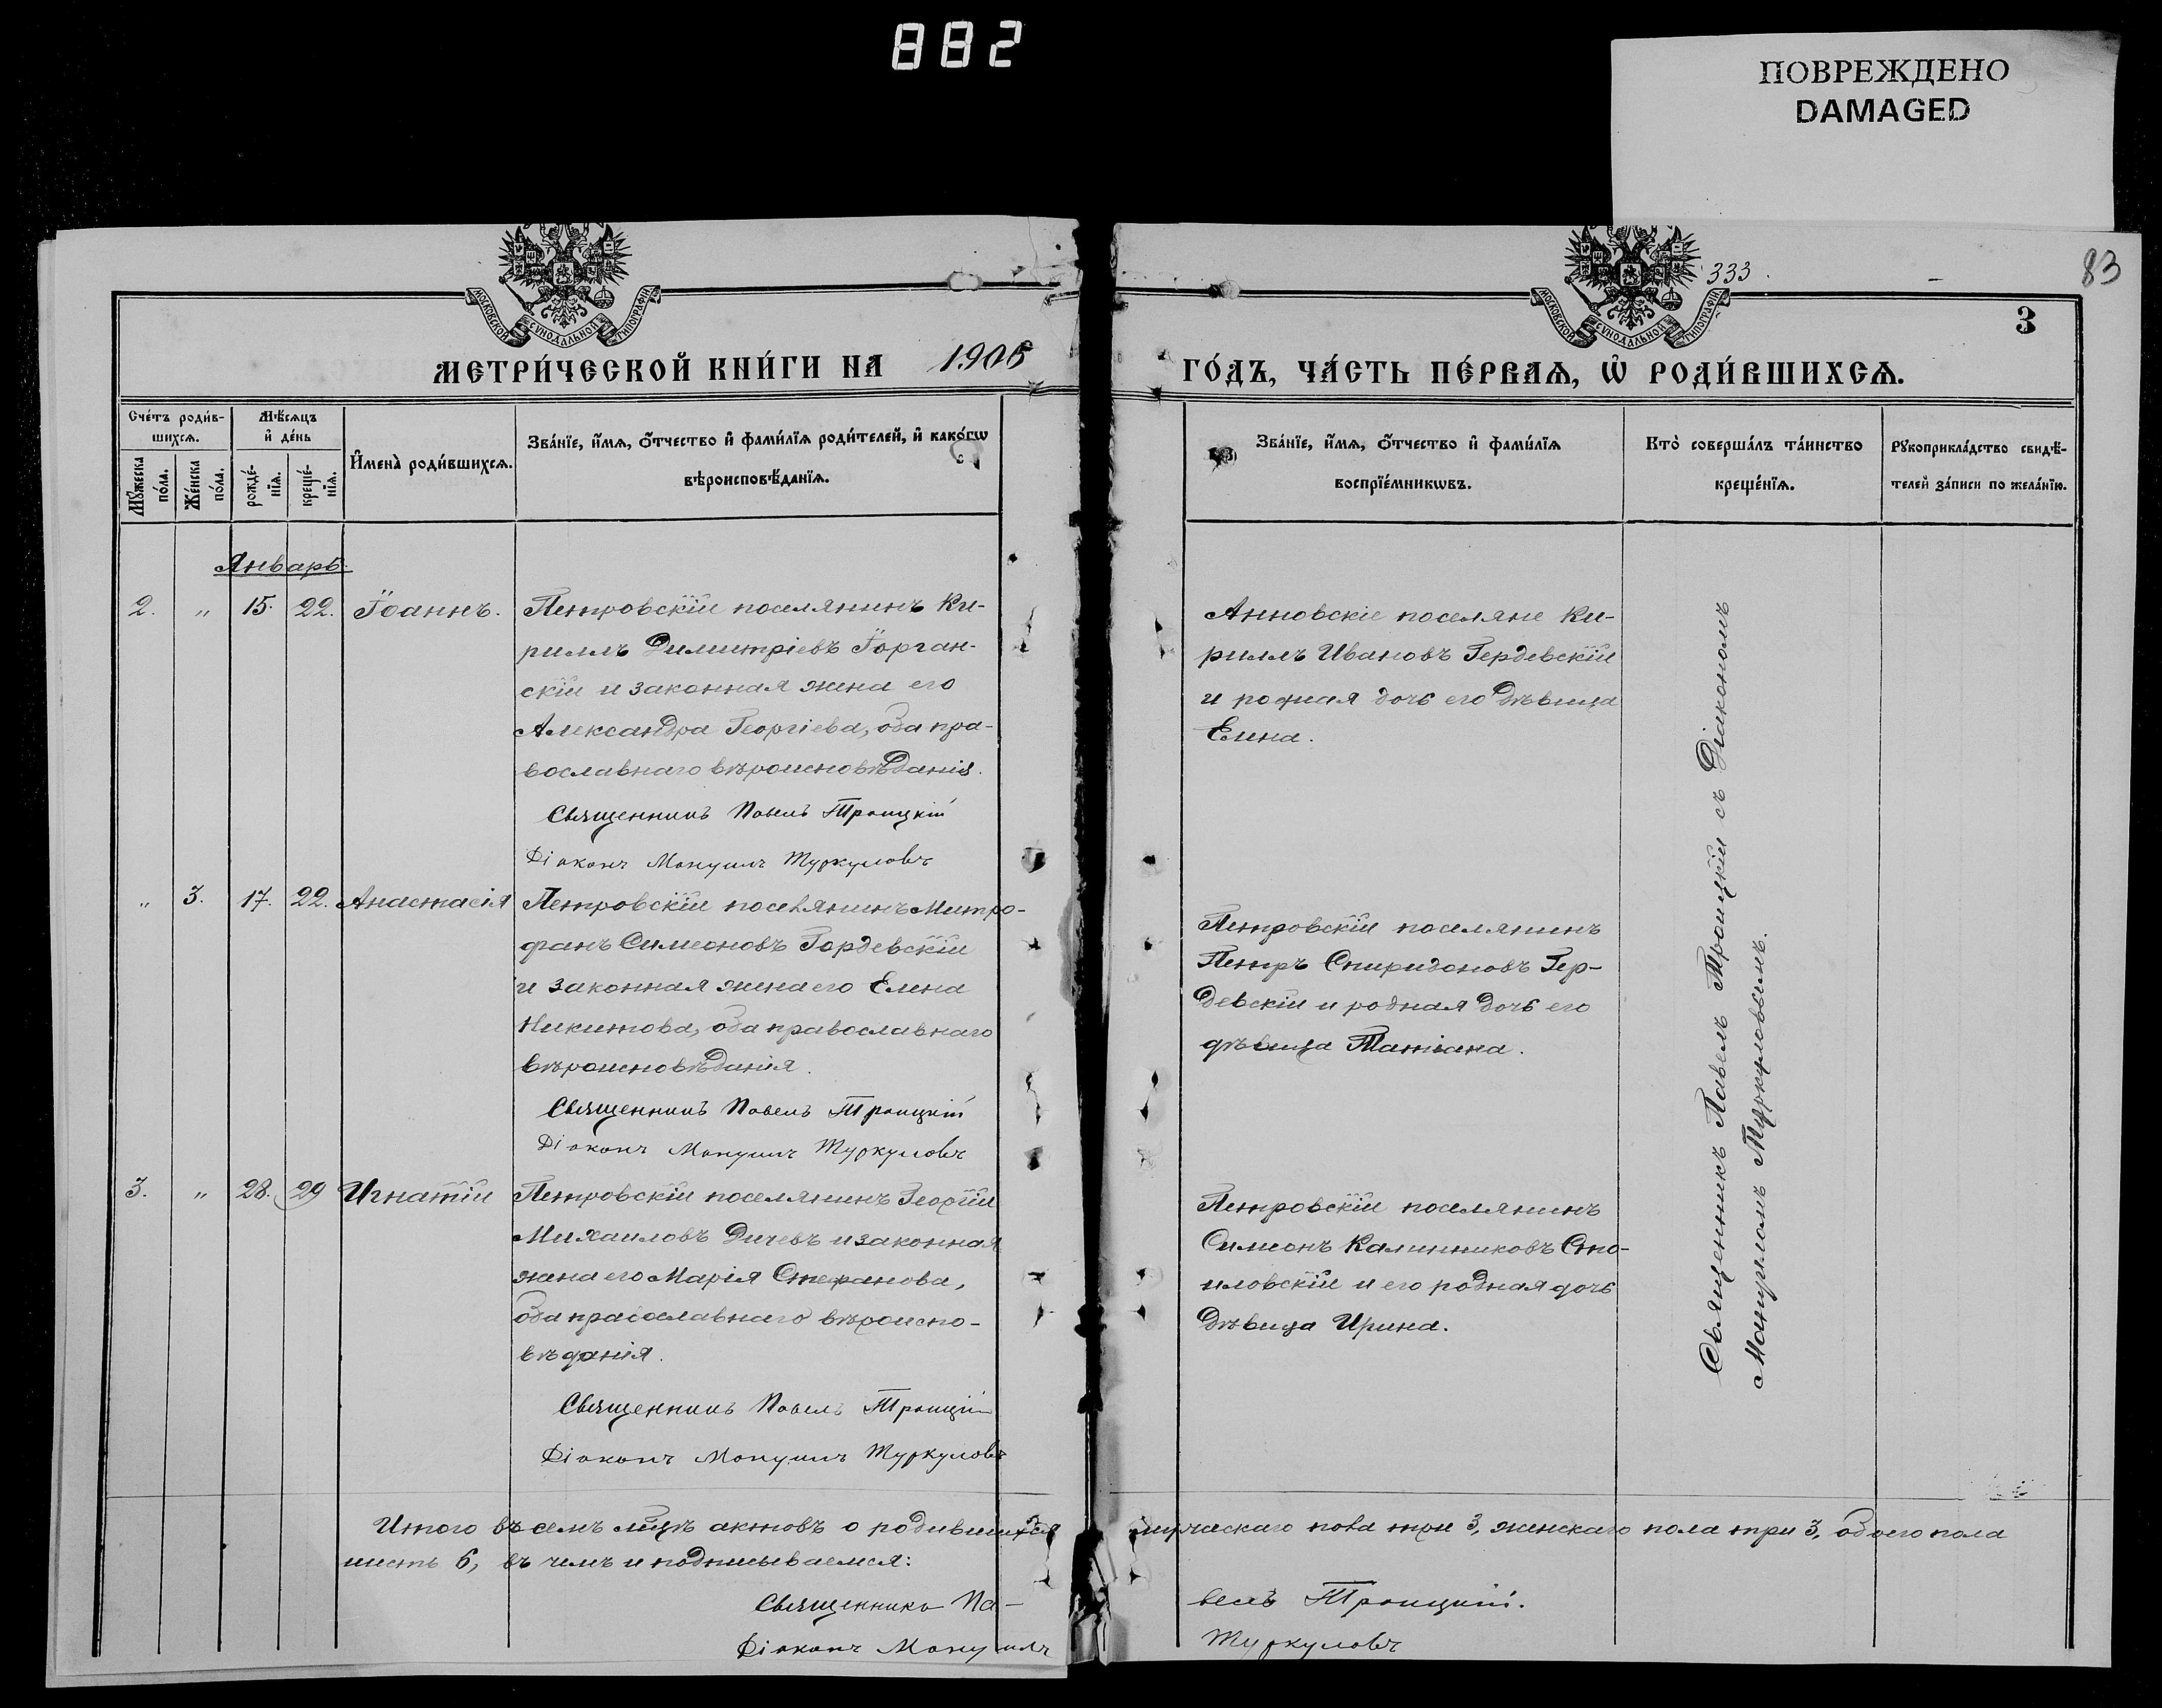 882
ПОВРЕЖДЕНО
DAMAGED
333.
83
3
МОСКОВСКОЙ СѴНОДАЛЬНОЙ ТИПОГРАФІИ
МОСКОВСКОЙ СѴНОДАЛЬНОЙ ТИПОГРАФІИ
МЕТРИ́ЧЕСКОЙ КНИ́ГИ НА 1905
ГО́ДЪ, ЧА́СТЬ ПЕ́РВАѦ, Ѡ҆ РОДИ́ВШИХСѦ.
Сче́тъ роди́в-
шихсѧ.
Мꙋ́жеска по́ла.
Же́нска по́ла.
Мѣ́сѧцъ
и҆ де́нь
рожде́-
нїѧ.
креще́-
нїѧ.
И҆мена̀ роди́вшихсѧ.
Зва́нїе, и҆́мѧ, ѻ҆́тчество и҆ фами́лїѧ роди́телей, и҆ како́гѡ
вѣроисповѣ́данїѧ.
Зва́нїе, и҆́мѧ, ѻ҆́тчество и҆ фами́лїѧ
воспрїе́мникѡвъ.
Кто̀ соверша́лъ та́инство
креще́нїѧ.
Рꙋкоприкла́дство свидѣ́-
телей за́писи по жела́нїю.
Январь.
2. " 15. 22. Іоаннъ.
Петровскій поселянинъ Ки-
риллъ Димитріевъ Іорган-
скій и законная жена его
Александра Георгіева, оба пра-
вославнаго вѣроисповѣданія.
Священникъ Павелъ Троицкій
Діаконъ Мануилъ Туркуловъ
Анновскіе поселяне Ки-
риллъ Ивановъ Гердевскій
и родная дочь его дѣвица
Елена.
" 3. 17. 22. Анастасія
Петровскій поселянинъ Митро-
фанъ Симеоновъ Гордевскій
и законная жена его Елена
Никитова, оба православнаго
вѣроисповѣданія.
Священникъ Павелъ Троицкій
Діаконъ Мануилъ Туркуловъ
Петровскій поселянинъ
Петръ Спиридоновъ Гер-
девскій и родная дочь его
дѣвица Татіана.
3. " 28. 29 Игнатій
Петровскій поселянинъ Георгій
Михаиловъ Дичевъ и законная
жена его Марія Стефанова,
оба православнаго вѣроиспо-
вѣданія.
Священникъ Павелъ Троицкій
Діаконъ Мануилъ Туркуловъ
Петровскій поселянинъ
Симеонъ Калинниковъ Сто-
иловскій и его родная дочь
дѣвица Ирина.
Священникъ Павелъ Троицкій съ Діакономъ
Мануиломъ Туркуловымъ.
Итого въ семъ мѣсяцѣ актовъ о родившихся мужескаго пола три 3, женскаго пола три 3, обоего пола
шесть 6, въ чемъ и подписываемся:
Священникъ Па-велъ Троицкій.
Діаконъ Мануилъ Туркуловъ